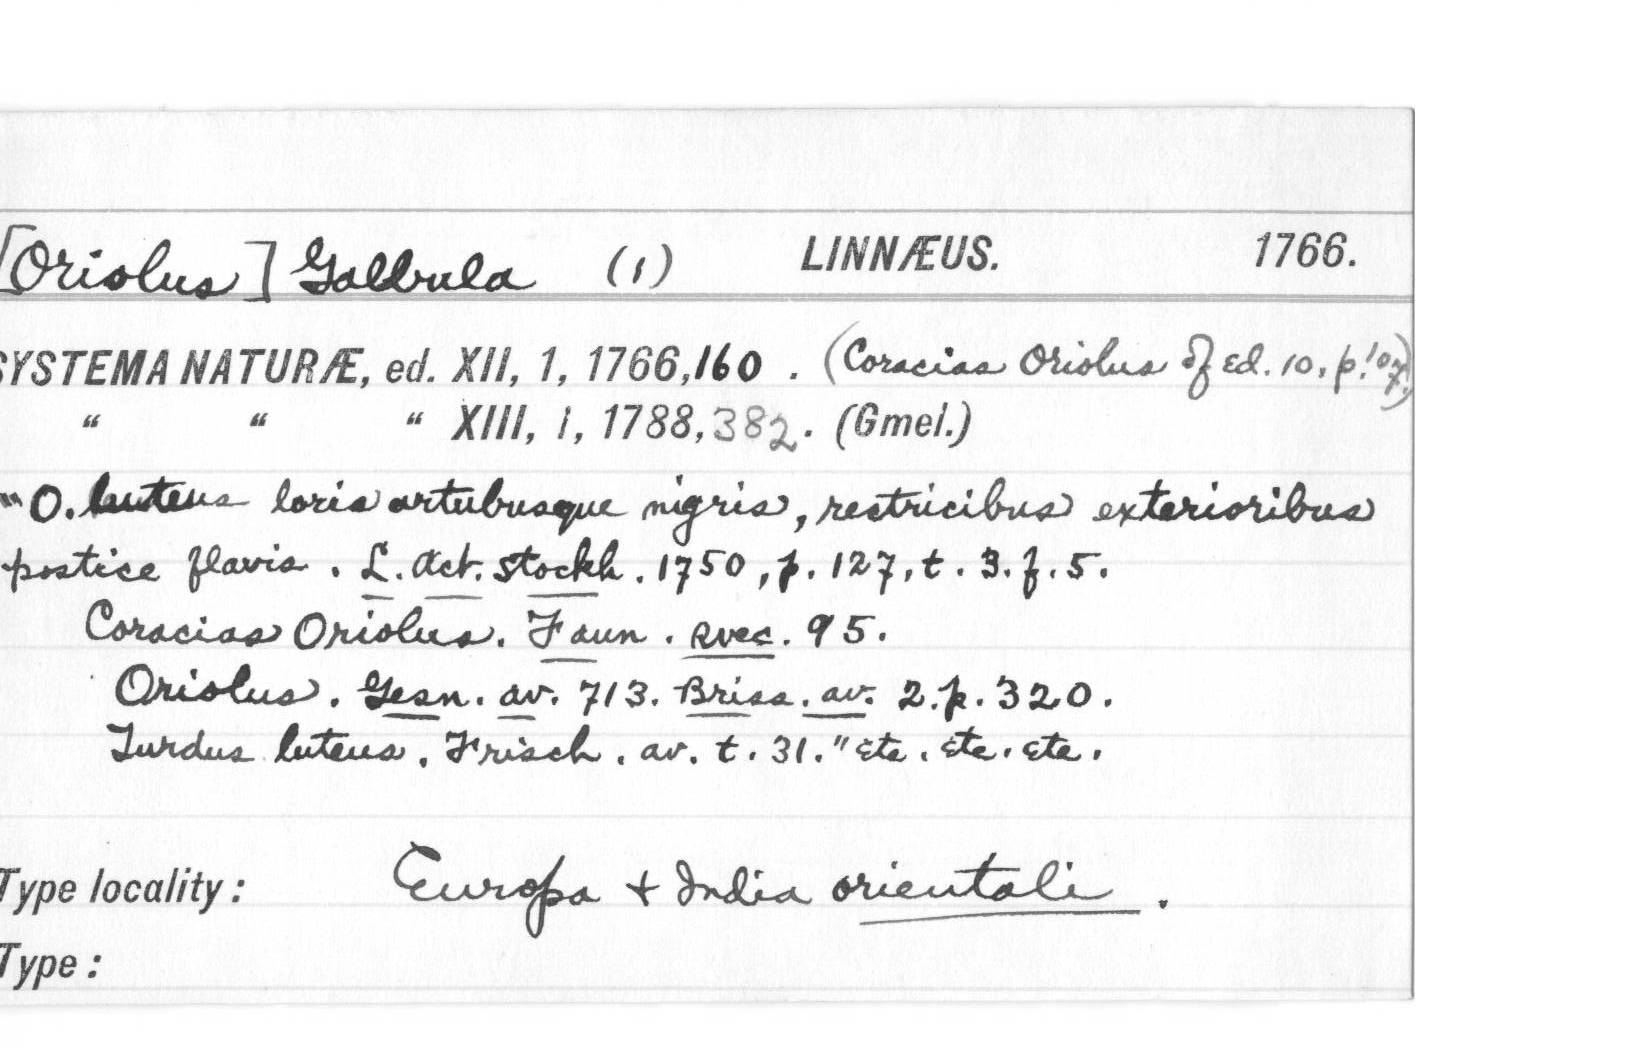 [Oriolus] Galbula (1) LINNÆUS. 1766.
SYSTEMA NATURÆ, ed. XII, 1, 1766, 160. (Coracias Oriolus of Ed. 10, p. 107.)
“ “ “ XIII, 1, 1788, 382. (Gmel.)
"O. luteus loris artubusque nigris, rectricibus exterioribus
postice flavis. L. Act. Stockh. 1750, p. 127, t. 3. f. 5.
Coracias Oriolus. Faun. svec. 95.
Oriolus. Gesn. av. 713. Briss. av. 2. p. 320.
Turdus luteus. Frisch. av. t. 31." Etc. Etc. Etc.
Type locality: Europa + India orientali.
Type: